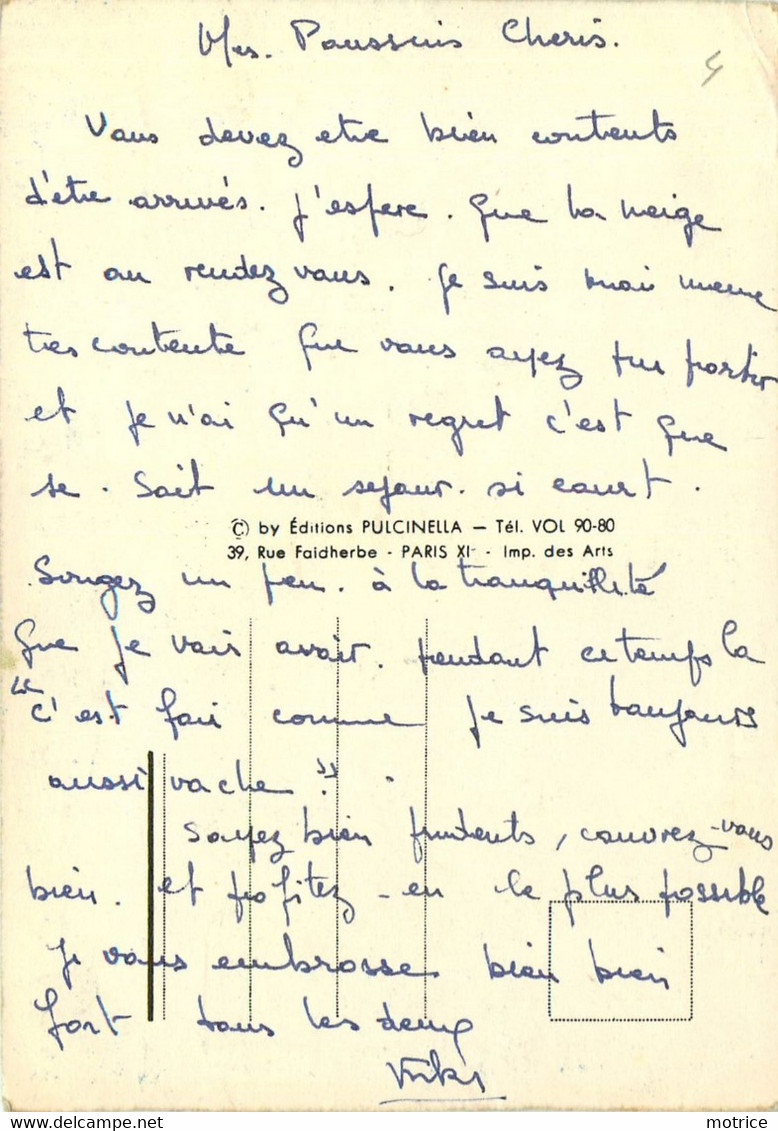 Mes. Poussins Cheris.
4
Vous devez etre bien contents
d'être arrivés. J'espere. Que la neige
est au rendez vous. Je suis moi meme
tres contente Que vous ayez pu partir
et Je n'ai qu'un regret c'est Que
se. Soit un sejour. si court.
© by Éditions PULCINELLA — Tél. VOL 90-80
39, Rue Faidherbe - PARIS XI - Imp. des Arts
Songez un peu. à la tranquillité
Que Je vais avoir. pendant ce temps la
"c'est fou comme Je suis toujours
aussi vache!".
Soyez bien prudents, couvrez-vous
bien. et pofitez-en le plus possible
Je vous embrasse bien bien
fort tous les deux
www.delcampe.net
motrice